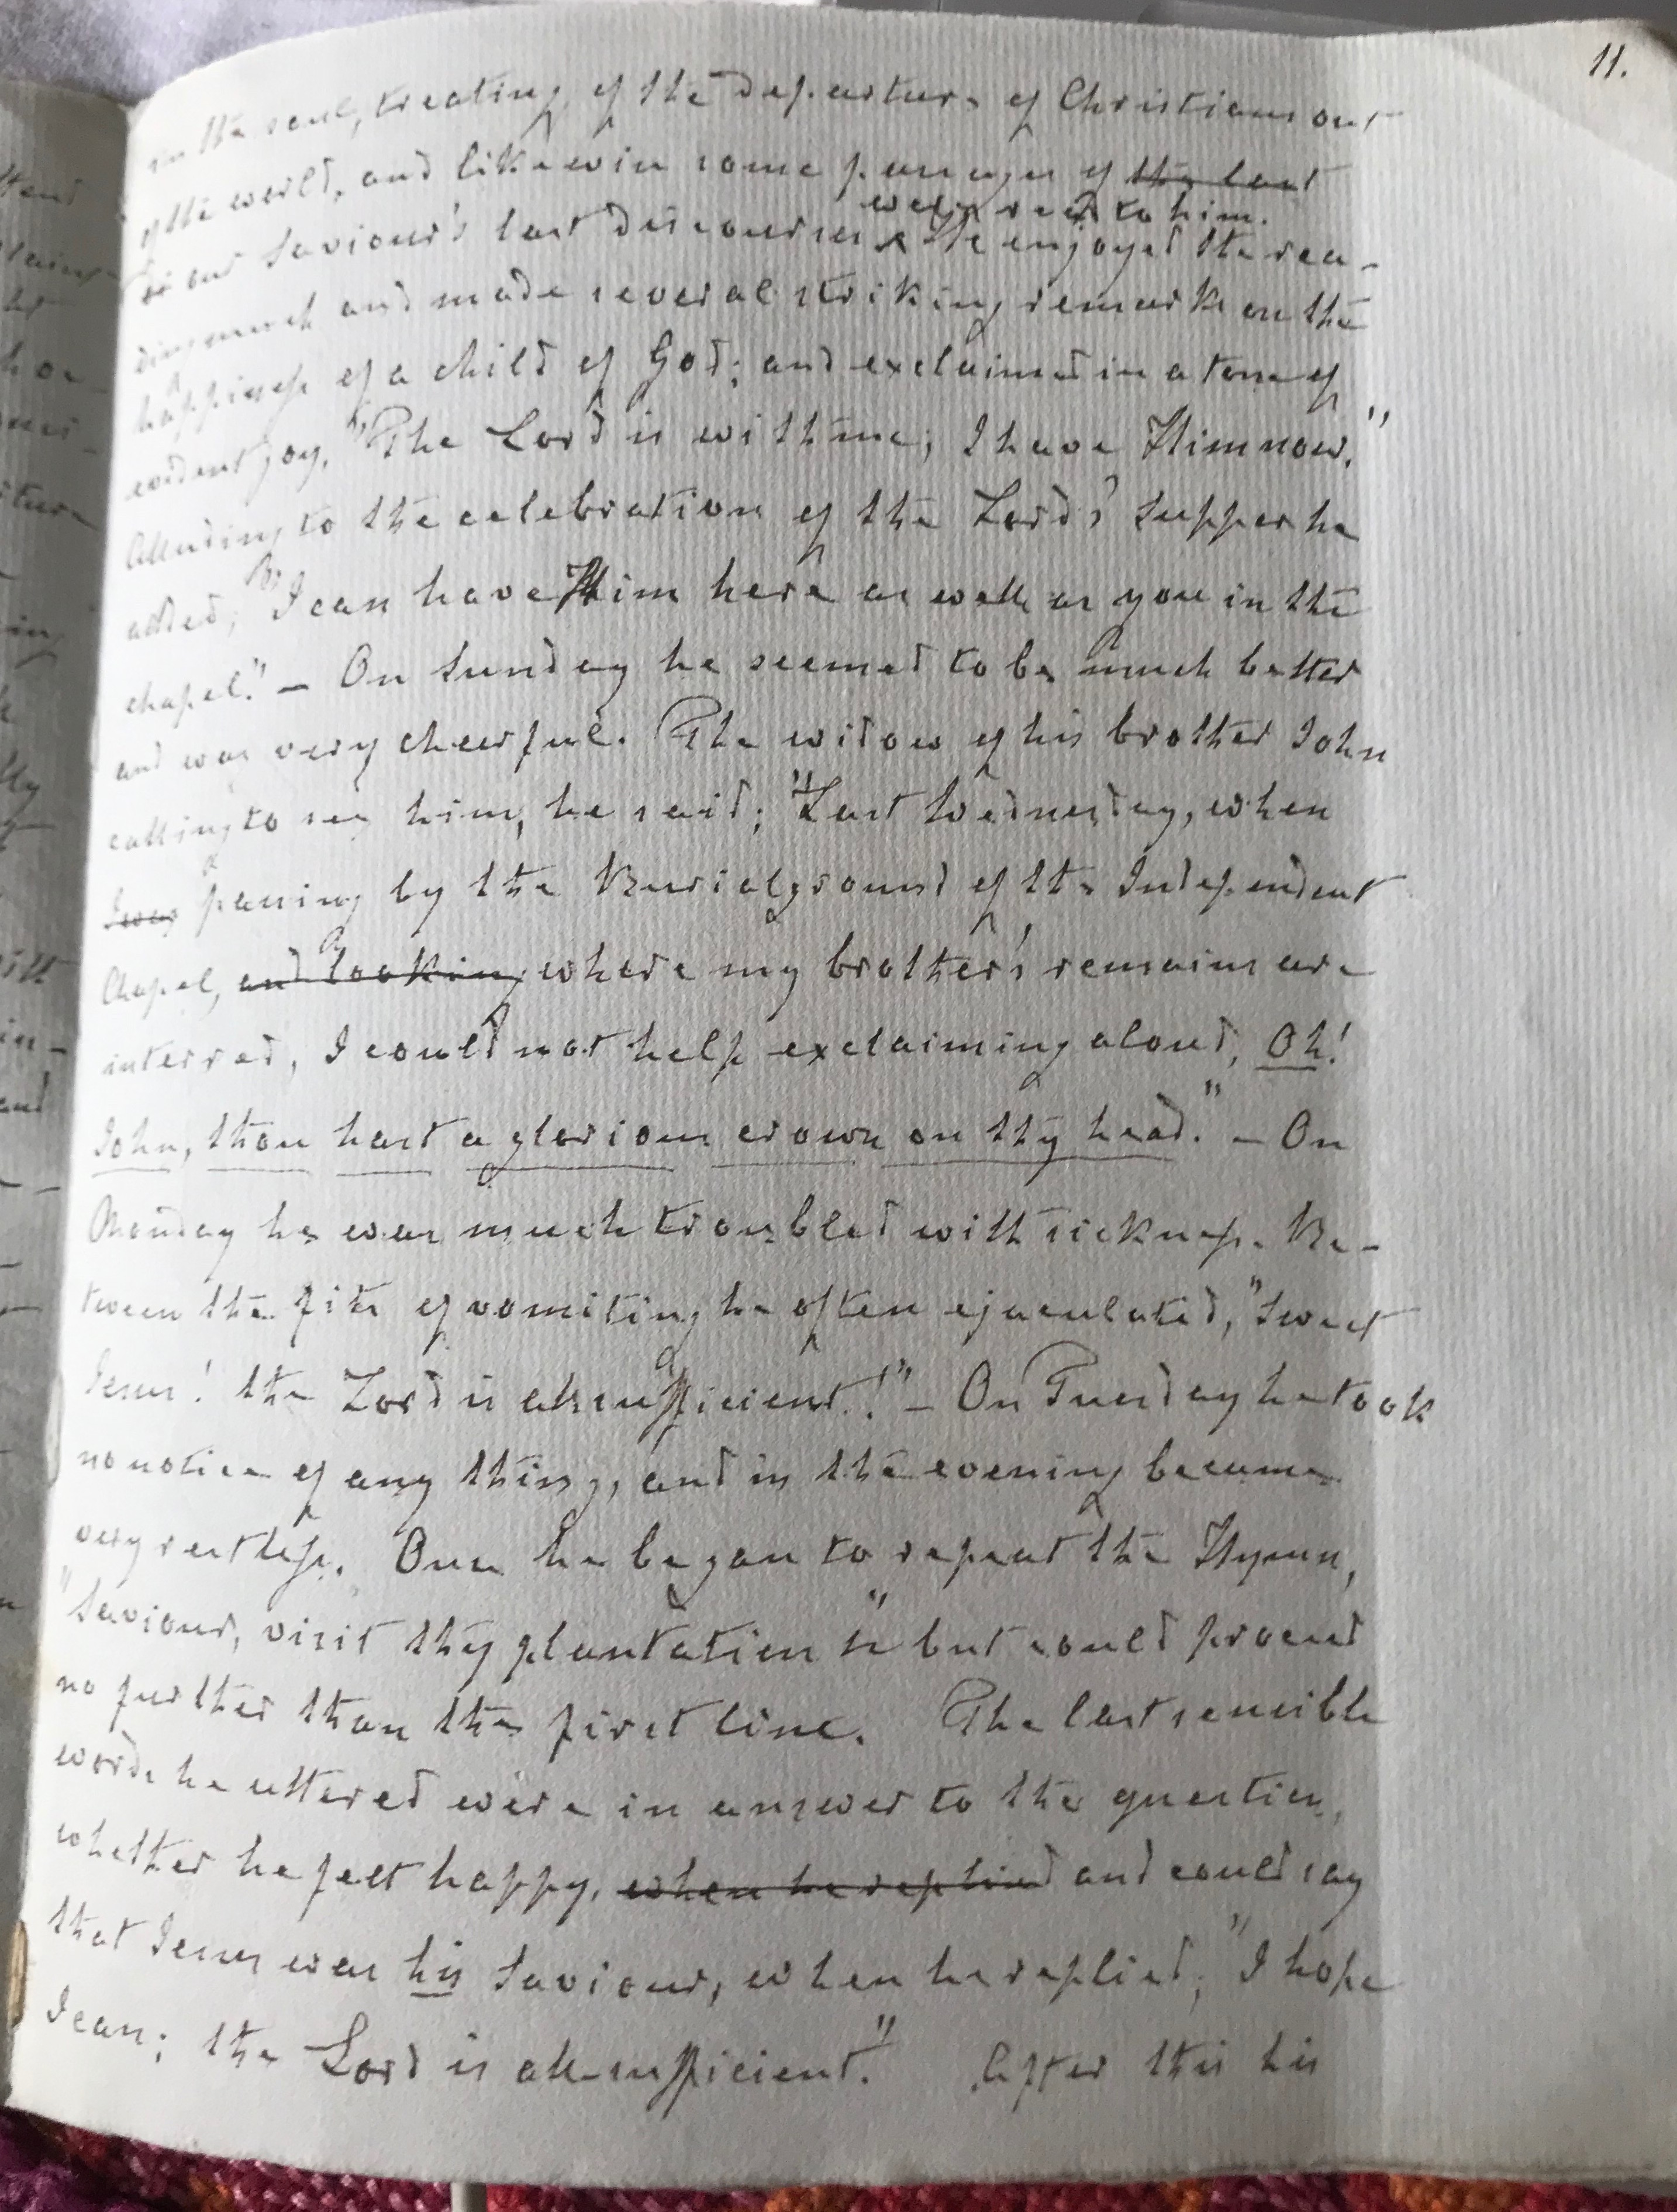 11.
in the soul, treating of the departure of Christians out
of the world, and likewise some passages of the last
were read to him.
of our Saviour's last discourses. He enjoyed the rea-
ding much and made several striking remarks on the
happiness of a child of God; and exclaimed in a tone of
evident joy, "The Lord is with me; I have Him now."
Alluding to the celebration of the Lord's Supper he
added; "I can have Him here as well as you in the
chapel." – On Sunday he seemed to be much better
and was very cheerful. The widow of his brother John
calling to see him, he said; "Last Wednesday, when
I was passing by the Burialground of the Independent
Chapel, and looking where my brother's remains are
interred, I could not help exclaiming aloud, Oh!
John, thou hast a glorious crown on thy head." – On
Monday he was much troubled with sickness. Be-
tween the fits of vomiting he often ejaculated, "Sweet
Jesus! the Lord is allsufficient!" – On Tuesday he took
no notice of any thing, and in the evening became
very restless. Once he began to repeat the Hymn,
"Saviour, visit thy plantation" but could proceed
no further than the first line. The last sensible
words he uttered were in answer to the question,
whether he felt happy, when he replied and could say
that Jesus was his Saviour, when he replied; "I hope
I can; the Lord is all-sufficient." After this his